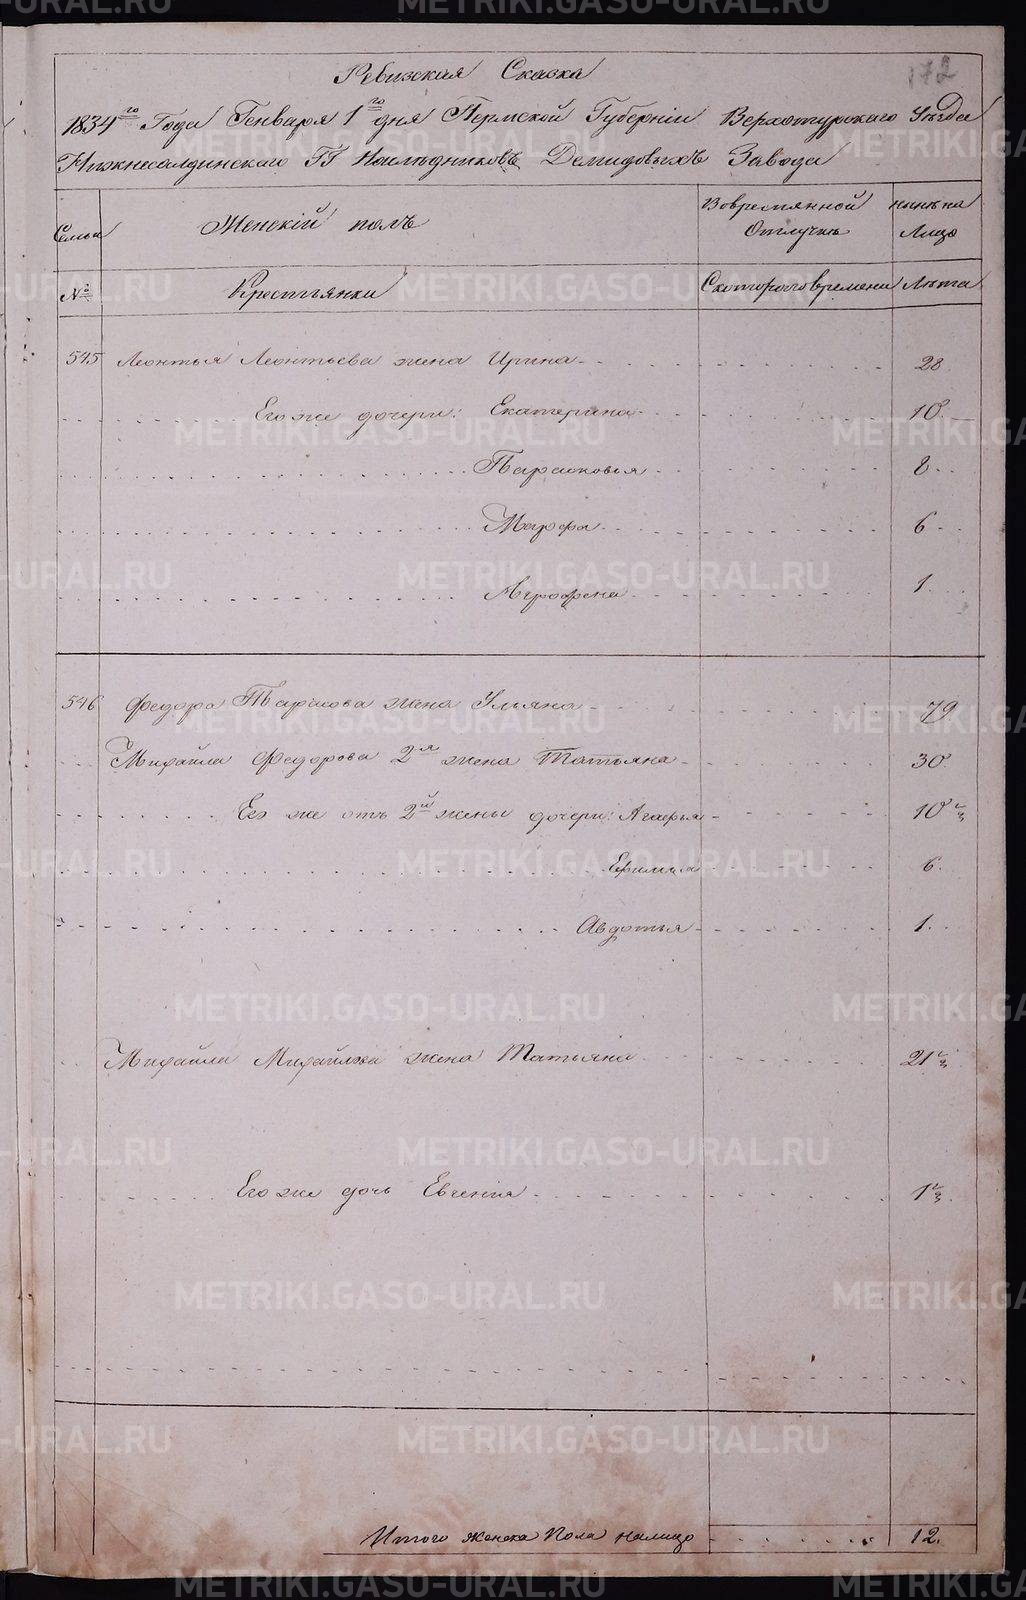 172
Ревизская Сказка
1834го Года Генваря 1го дня Пермской Губернiи Верхотурскаго Уѣзда
Нижнесалдинскаго ГГ Наслѣдниковъ Демидовыхъ Завода
Семьи Женскiй полъ Вовременной Отлучкѣ нынѣ на Лицо
№ Крестьянки Скоторого времени Лѣта
545 Леонтья Леонтьева жена Ирина 28
Его же дочери: Екатерина 10
Парасковья 8
Марфа 6
Аграфена 1
546 Федора Тарасова жена Ульяна 79
Михайла Федорова 2я жена Татьяна 30
Его же отъ 2й жены дочери: Агафья 10 ½
Ефимья 6
Авдотья 1
Михайла Михайлова жена Татьяна 21 ½
Его же дочь Евгенiя 1 ½
Итого женска Пола налицо 12.
METRIKI.GASO-URAL.RU